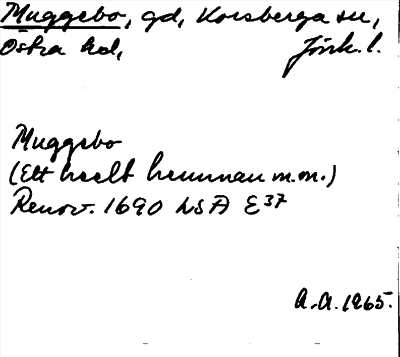 Muggebo, gd, Korsberga sn,
Östra hd, Jönk. l.
Muggebo
(Ett heelt hemman m.m.)
Renov. 1690 LSA E37
A.A. 1965.